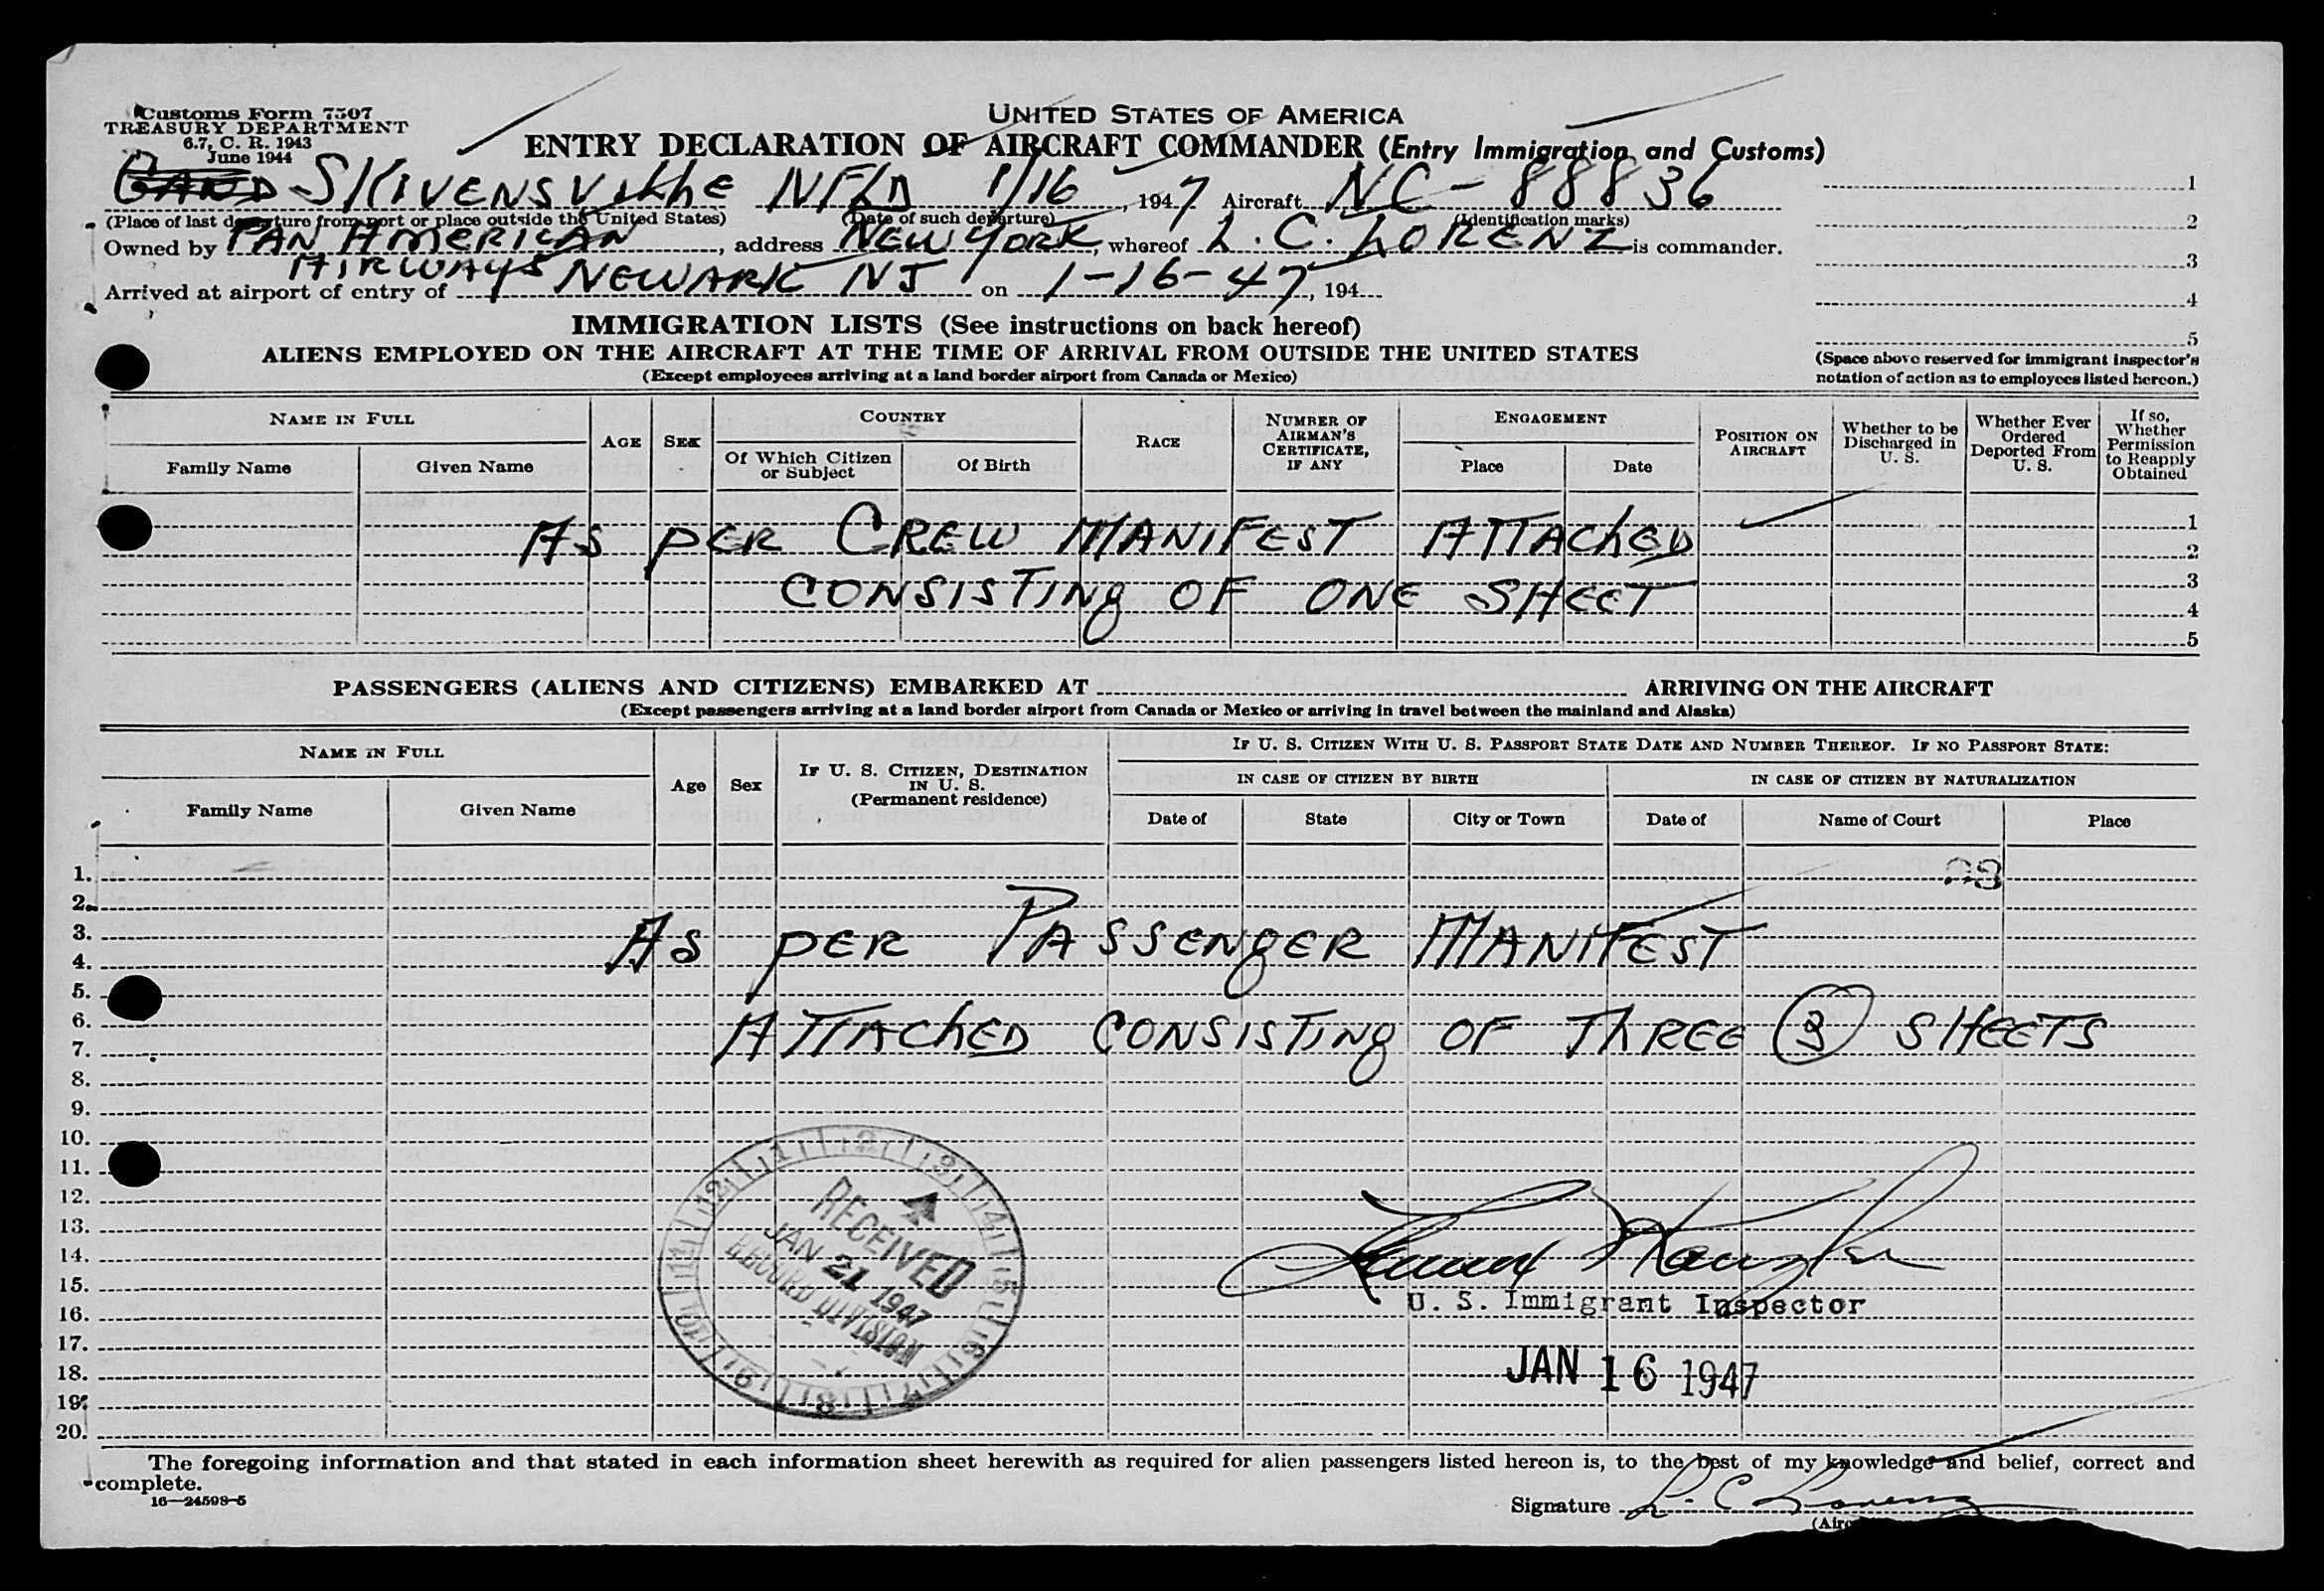 Customs Form 7507
TREASURY DEPARTMENT
6.7, C. R. 1943
June 1944
UNITED STATES OF AMERICA
ENTRY DECLARATION OF AIRCRAFT COMMANDER (Entry Immigration and Customs)
NFLD 1/16, 1947 Aircraft NC-88836
(Place of last departure from port or place outside the United States) (Date of such departure) (Identification marks)
Owned by PAN AMERICAN AIRWAYS, address NEW YORK, whereof L. C. LORENZ is commander.
Arrived at airport of entry of NEWARK NJ on 1-16-47, 194
1
2
3
4
5
(Space above reserved for immigrant inspector's
notation of action as to employees listed hereon.)
IMMIGRATION LISTS (See instructions on back hereof)
ALIENS EMPLOYED ON THE AIRCRAFT AT THE TIME OF ARRIVAL FROM OUTSIDE THE UNITED STATES
(Except employees arriving at a land border airport from Canada or Mexico)
NAME IN FULL
Family Name Given Name
AGE
SEX
COUNTRY
Of Which Citizen or Subject
Of Birth
RACE
NUMBER OF AIRMAN'S CERTIFICATE, IF ANY
ENGAGEMENT
Place Date
POSITION ON AIRCRAFT
Whether to be Discharged in U. S.
Whether Ever Ordered Deported From U. S.
If so, Whether Permission to Reapply Obtained
1
AS PER CREW MANIFEST ATTACHED
2
3
CONSISTING OF ONE SHEET
4
5
PASSENGERS (ALIENS AND CITIZENS) EMBARKED AT ARRIVING ON THE AIRCRAFT
(Except passengers arriving at a land border airport from Canada or Mexico or arriving in travel between the mainland and Alaska)
NAME IN FULL
Family Name Given Name
Age
Sex
IF U. S. CITIZEN, DESTINATION IN U. S.
(Permanent residence)
IF U. S. CITIZEN WITH U. S. PASSPORT STATE DATE AND NUMBER THEREOF. IF NO PASSPORT STATE:
IN CASE OF CITIZEN BY BIRTH
Date of State City or Town
IN CASE OF CITIZEN BY NATURALIZATION
Date of Name of Court Place
1.
2.
3.
AS PER PASSENGER MANIFEST
4.
5.
6.
ATTACHED CONSISTING OF THREE (3) SHEETS
7.
8.
9.
10.
11.
12.
13.
14.
15.
16.
17.
18.
19.
20.
12 1 2 3 4 5 6 7 8 9 10 11
RECEIVED
JAN 21 1947
RECORD DIVISION
U. S. Immigrant Inspector
JAN 16 1947
The foregoing information and that stated in each information sheet herewith as required for alien passengers listed hereon is, to the best of my knowledge and belief, correct and
complete.
16—24598-5
Signature L. C. Lorenz